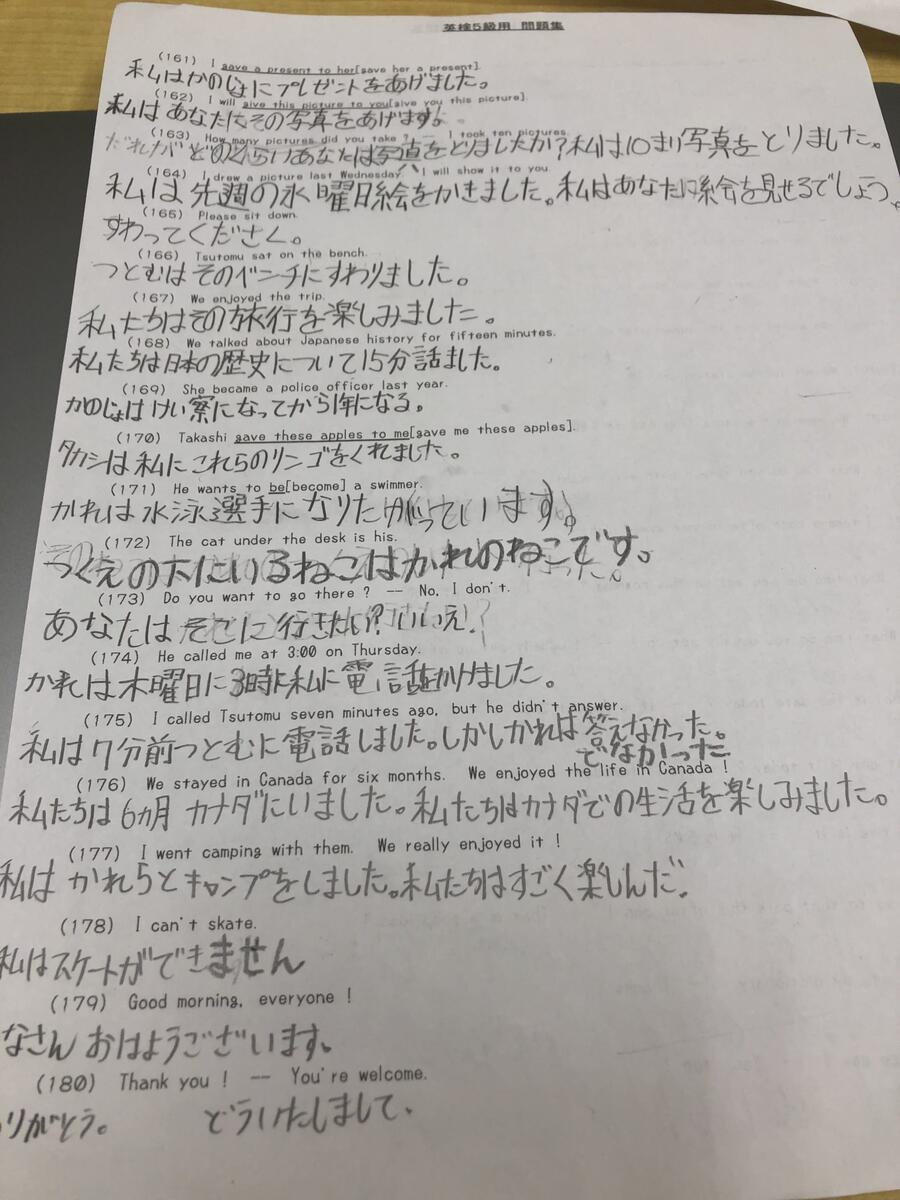 英検5級用 問題集
(161) I gave a present to her[gave her a present].
私はかのじょにプレゼントをあげました。
(162) I will give this picture to you[give you this picture].
私はあなたにその写真をあげます。
(163) How many pictures did you take ? -- I took ten pictures.
どのくらいあなたは写真をとりましたか?私は10まい写真をとりました。
(164) I drew a picture last Wednesday. I will show it to you.
私は先週の水曜日絵をかきました。私はあなたに絵を見せるでしょう。
(165) Please sit down.
すわってください。
(166) Tsutomu sat on the bench.
つとむはそのベンチにすわりました。
(167) We enjoyed the trip.
私たちはその旅行を楽しみました。
(168) We talked about Japanese history for fifteen minutes.
私たちは日本の歴史について15分話ました。
(169) She became a police officer last year.
かのじょはけい察になってから1年になる。
(170) Takashi gave these apples to me[gave me these apples].
タカシは私にこれらのリンゴをくれました。
(171) He wants to be[become] a swimmer.
かれは水泳選手になりたがっています。
(172) The cat under the desk is his.
つくえの下にいるねこはかれのねこです。
(173) Do you want to go there ? -- No, I don't.
あなたはそこに行きたい?いいえ!
(174) He called me at 3:00 on Thursday.
かれは木曜日に3時に私に電話をかけました。
(175) I called Tsutomu seven minutes ago, but he didn't answer.
私は7分前つとむに電話しました。しかしかれは答えなかった。
でなかった
(176) We stayed in Canada for six months. We enjoyed the life in Canada !
私たちは6カ月カナダにいました。私たちはカナダでの生活を楽しみました。
(177) I went camping with them. We really enjoyed it !
私はかれらとキャンプをしました。私たちはすごく楽しんだ。
(178) I can't skate.
私はスケートができません
(179) Good morning, everyone !
なさんおはようございます。
(180) Thank you ! -- You're welcome.
りがとう。 どういたしまして、